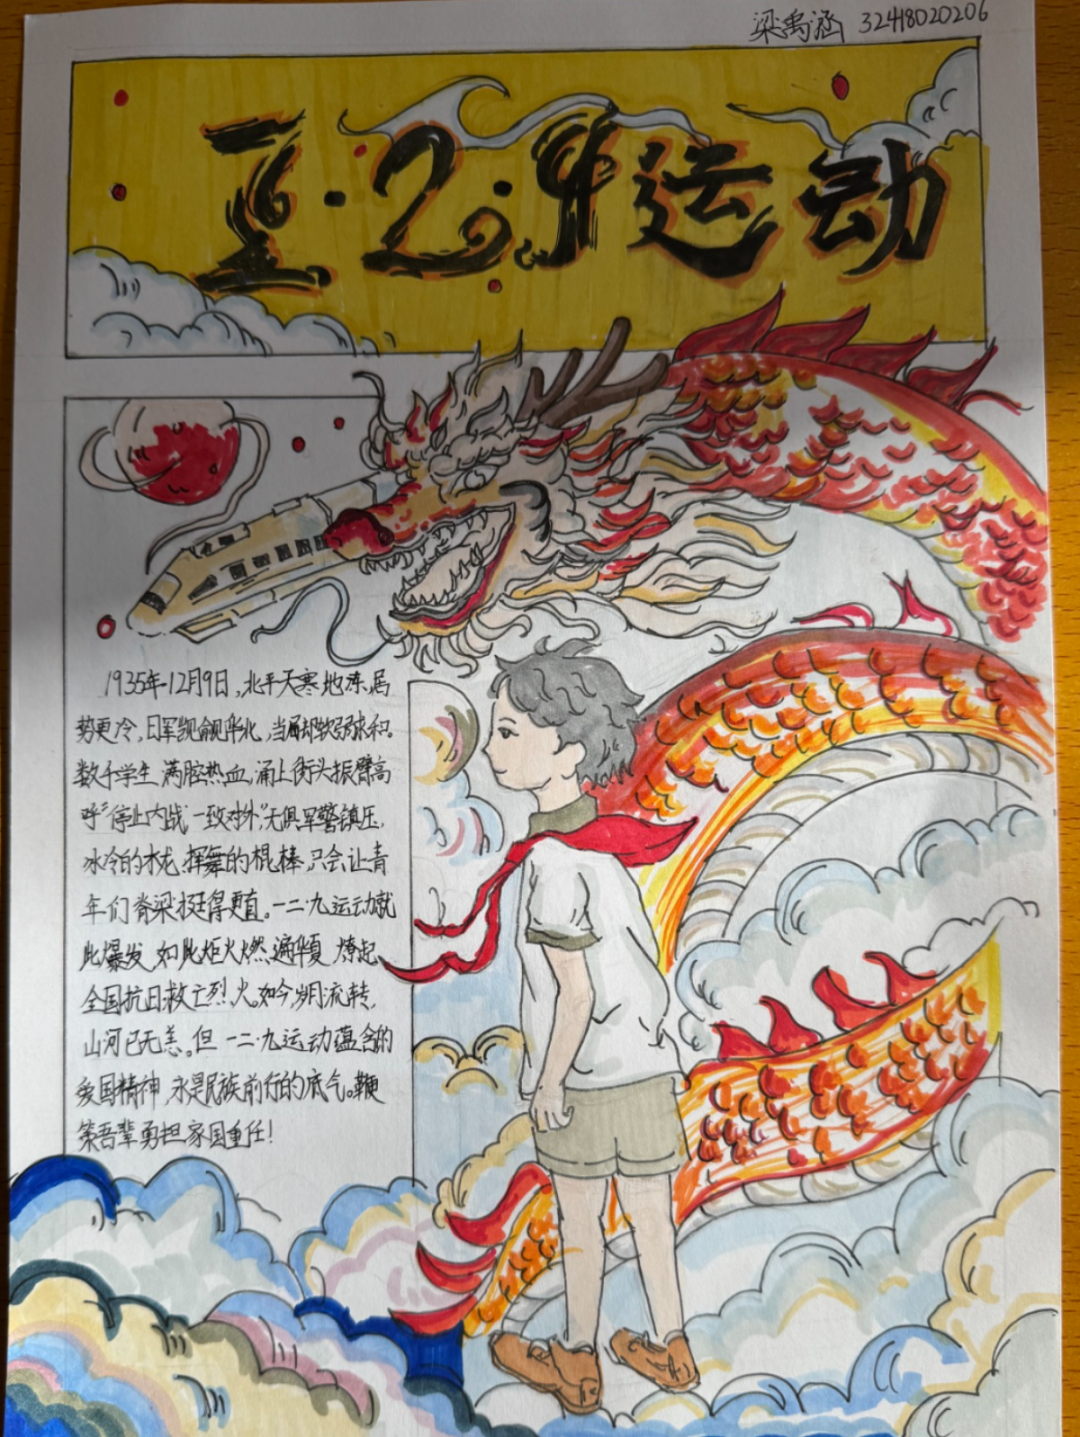 梁禹涵 32418020206
1·2·9运动
1935年12月9日,北平天寒地冻,局
势更冷,日军觊觎华北,当局却软弱求和。
数千学生 满腔热血,涌上街头振臂高
呼“停止内战 一致对外”,无惧军警镇压,
冰冷的水龙,挥舞的棍棒,只会让青
年们脊梁挺得更直。一二·九运动就
此爆发 如此炬火燃遍华夏 燎起
全国抗日救亡烈火,如今岁月流转,
山河已无恙。但 一二·九运动蕴含的
爱国精神 永是民族前行的底气。鞭
策吾辈勇担家国重任!